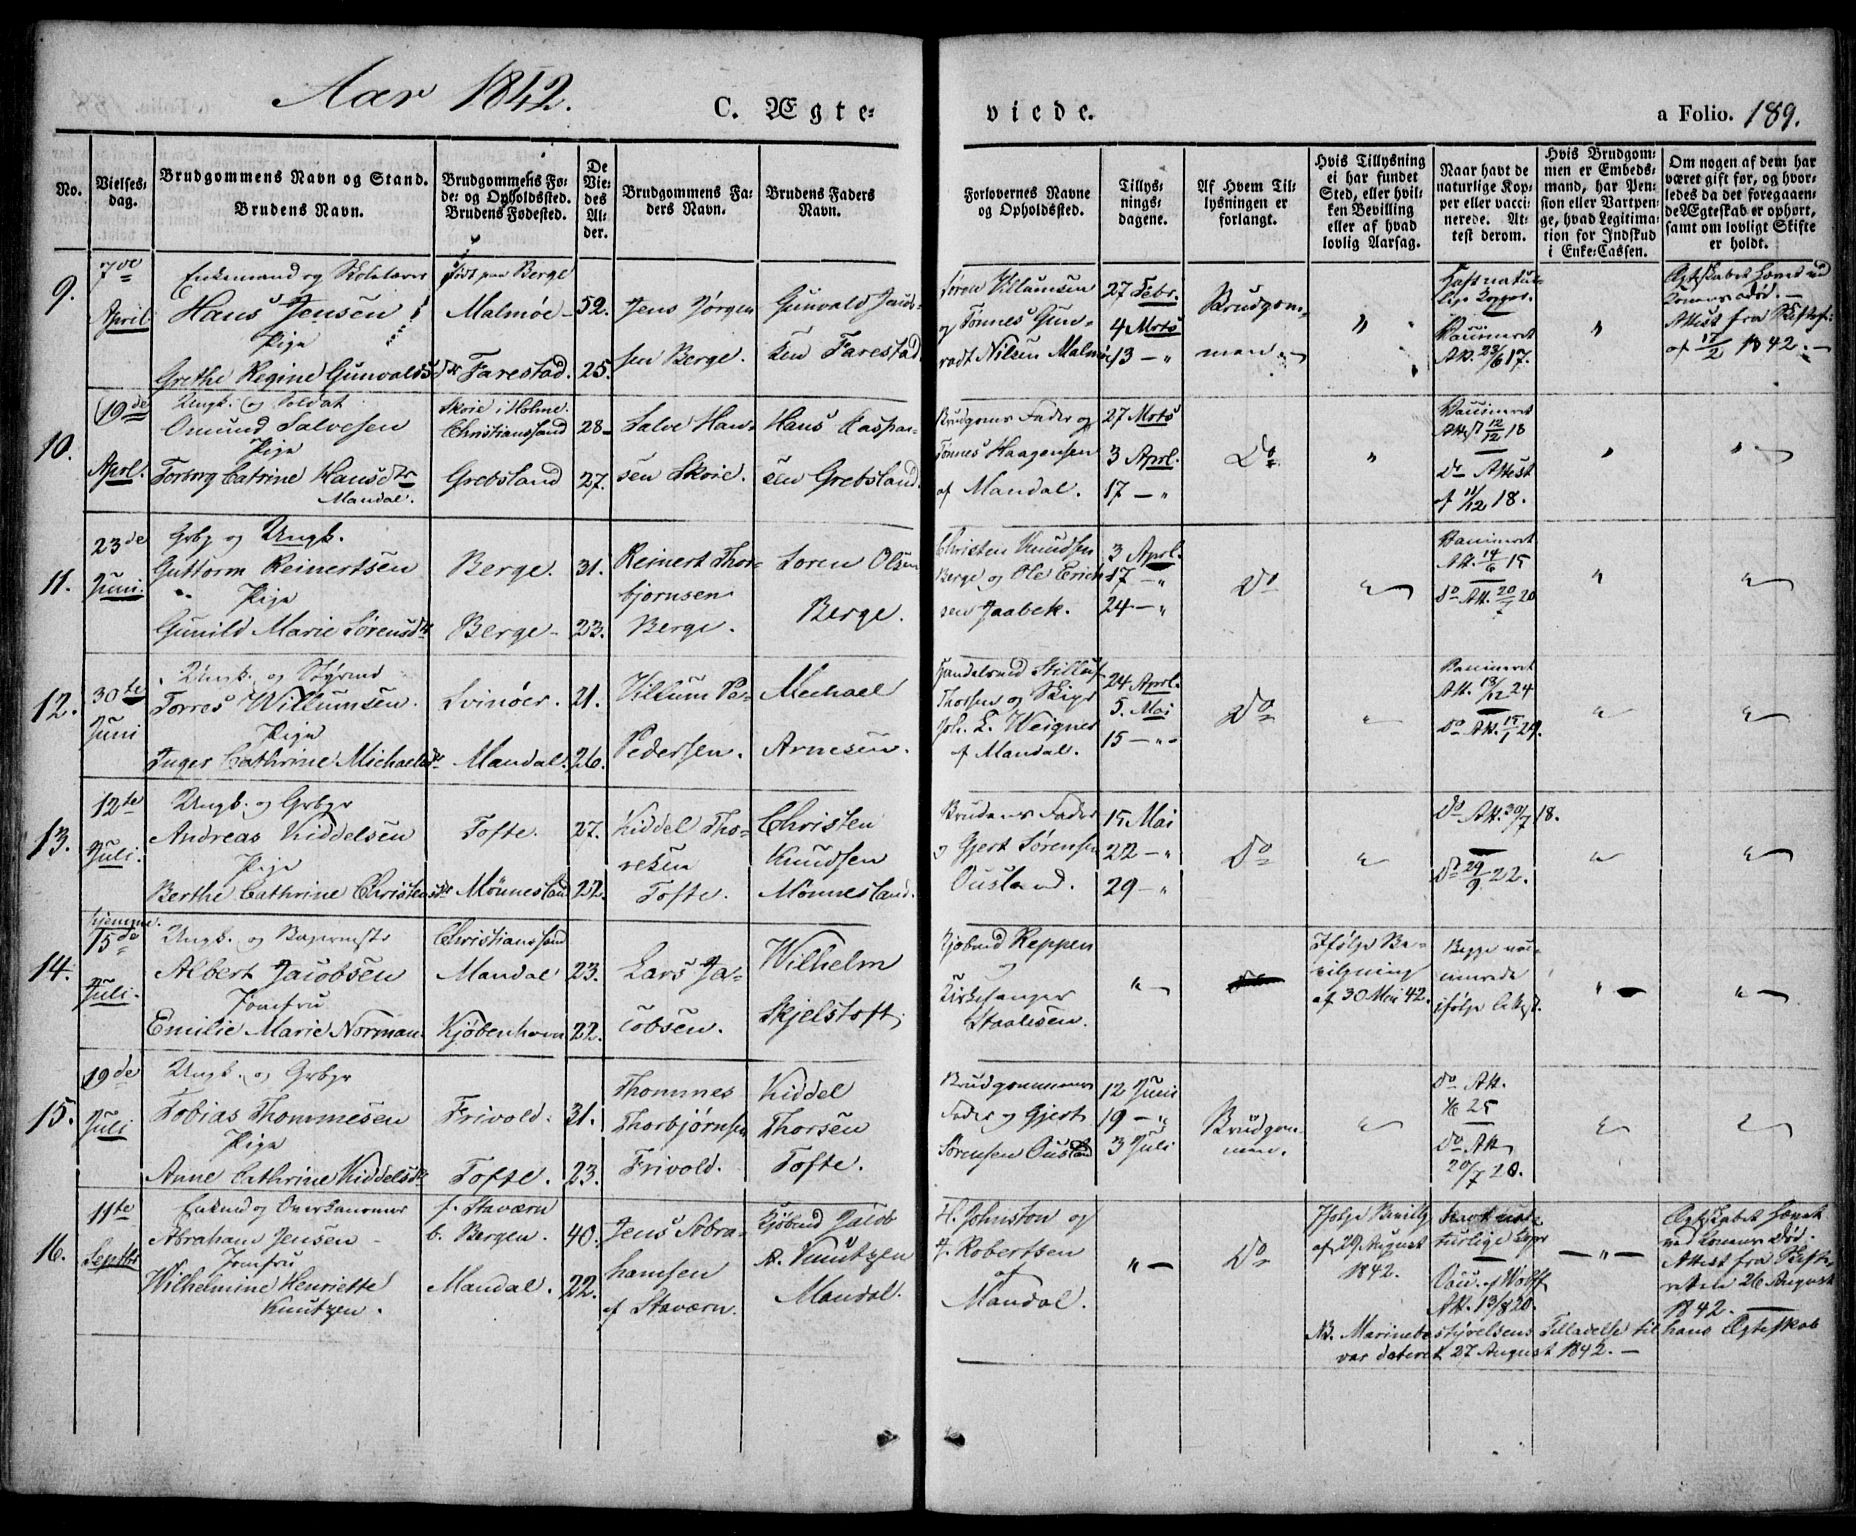 Aar 1842.
C. Ægte- viede.
a Folio. 189.
No.
Vielses-
dag.
Brudgommens Navn og Stand.
Brudens Navn.
Brudgommens Fø-
de- og Opholdsted.
Brudens Fødested.
De
Vie-
des
Al-
der.
Brudgommens Fa-
ders Navn.
Brudens Faders
Navn.
Forlovernes Navne
og Opholdssted.
Tillys-
nings-
dagene.
Af Hvem Til-
lysningen er
forlangt.
Hvis Tillysning
ei har fundet
Sted, eller hvil-
ken Bevilling
eller af hvad
lovlig Aarsag.
Naar havt de
naturlige Kop-
per eller vacci-
nerede. At-
test derom.
Hvis Brudgom-
men er Embeds-
mand, har Pen-
sion eller Vartpen-
ge, hvad Legitima-
tion for Indskud
i Enke-Cassen.
Om nogen af dem har
været gift før, og hvor-
ledes da det foregaaen-
de Ægteskab er ophørt,
samt om lovligt Skifte
er holdt.
9.
7de
April
Enkemand og Skolelærer
Hans Jensen
Pige
Grethe Regine Gunvaldsdr
født paa Berge
Malmøe
Farestad.
52.
25.
Jens Jørgen-
sen Berge.
Gunvald
Farestad
Søren Villumsen
og Tønnes Gun-
vald Nilsen Malmø
27 Febr.
4 Mrts
13 - "
Brudgom-
men.
"
Haft natur-
lige Kopper.
Vaccineret
Att. 23/6 17.
"
Ægteskabet hævet ved
Konens Død.
Attest fra Skifte
af 17/2 1842.
10.
19de
Aprl.
Ungk. og Soldat
Omund Salvesen
Pige
Torborg Catrine Hansdtr
Mandal.
Skoie i Holme
Christianssand
Grebsland
28
27.
Salve Han-
sen Skoie.
Hans Kaspar-
sen Grebsland.
Brudgoms Fader og
Tønnes Haagensen
af Mandal.
27 Mrts
3 Aprl.
17 - "
Do
"
Vaccineret
Attest 12/12 18
do Attest
af 11/12 18.
"
"
11.
23de
Juni.
Grbg og Ungk.
Guttorm Reinertsen
Pige
Gunild Marie Sørensdr
Berge.
Berge
31.
23.
Reinert Thor-
bjørnsen
Berge.
Soren Olsen
Berge.
Christen Knudsen
Berge og Ole Erich-
sen Jaabek.
3 Aprl.
17 - "
24 - "
Do
"
Vaccineret
Att. 14/6 15
do Att. 20/7 20
"
"
12.
30te
Juni
Ungk. og Styrmd
Torres Willumsen.
Pige
Inger Cathrine Michaelsdr
Svinöer.
Mandal.
21.
26.
Villum Pe-
Pedersen.
Mechael
Arnesen.
Handelsmd
Thorsen og Skipr
Joh. L. Weigner
af Mandal.
24 Aprl.
5. Mai
15 - "
Do
"
Vaccineret
Att. 13/12 24
do Att. 15/1 29.
"
"
13.
12te
Juli.
Ungk. og Grbgr
Andreas Kiddelsen
Pige
Berthe Cathrine Christensdr
Tofte.
Mønnesland
27.
22.
Kiddel Tho-
resen
Tofte.
Christen
Knudsen
Mønnesland.
Brudens Fader
og Gjert Sørensen
Ousland.
15 Mai
22 - "
29 - "
Do
"
do Att. 30/7 18.
do 29/9 22.
"
"
14.
hjemme.
15de
Juli.
Ungk. og Bagermstr
Albert Jacobsen
Jomfru
Emilie Marie Norman.
Christianssand
Mandal
Kjøbenhavn
23.
22.
Lars Ja-
cobsen.
Wilhelm
Skjelstoft.
Kjøbmd Reppen
og
Kirkesanger
Staalesen.
"
Ifølge Be-
vilgning
af 30 Mai 42.
Begge vac-
cinerede
ifølge Attest.
"
"
15.
19de
Juli
Ungk. og Grbgr
Tobias Thommesen
Pige
Anne Cathrine Kiddelsdr
Frivold.
Tofte.
31.
23.
Thommes
Thorbjørnsen
Frivold.
Kiddel
Thorsen
Tofte.
Brudgommens
Fader og Gjert
Sørensen Ousland
12 Juni
19 - "
3 Juli
Brudgom-
men.
"
do Att.
25
do Att.
20/7 20.
"
"
16.
11te
Septbr
Enkemd og Overkanoneer
Abraham Jensen
Jomfru
Wilhelmine Henriette
Knutzen.
f. Staværn
b. Bergen.
Mandal.
40.
22.
Jens Abra-
hamsen
af Staværn.
Kjøbmd Jacob
R. Knutzen
Mandal.
H. Johnston og
J. Robertsen
af
Mandal.
"
Do
Ifølge Bevillg
af 29 August
1842.
Havt na-
turlige Kopr
Vac. af Wolff
Att. 13/8 20.
"
Ægteskabet hævet
ved Konens Død.
Attest fra Skifte-
retten 26 August
1842.
NB. Marinebestyrelsens Tilladelse til hans Ægteskab
var dateret 27 August 1842.